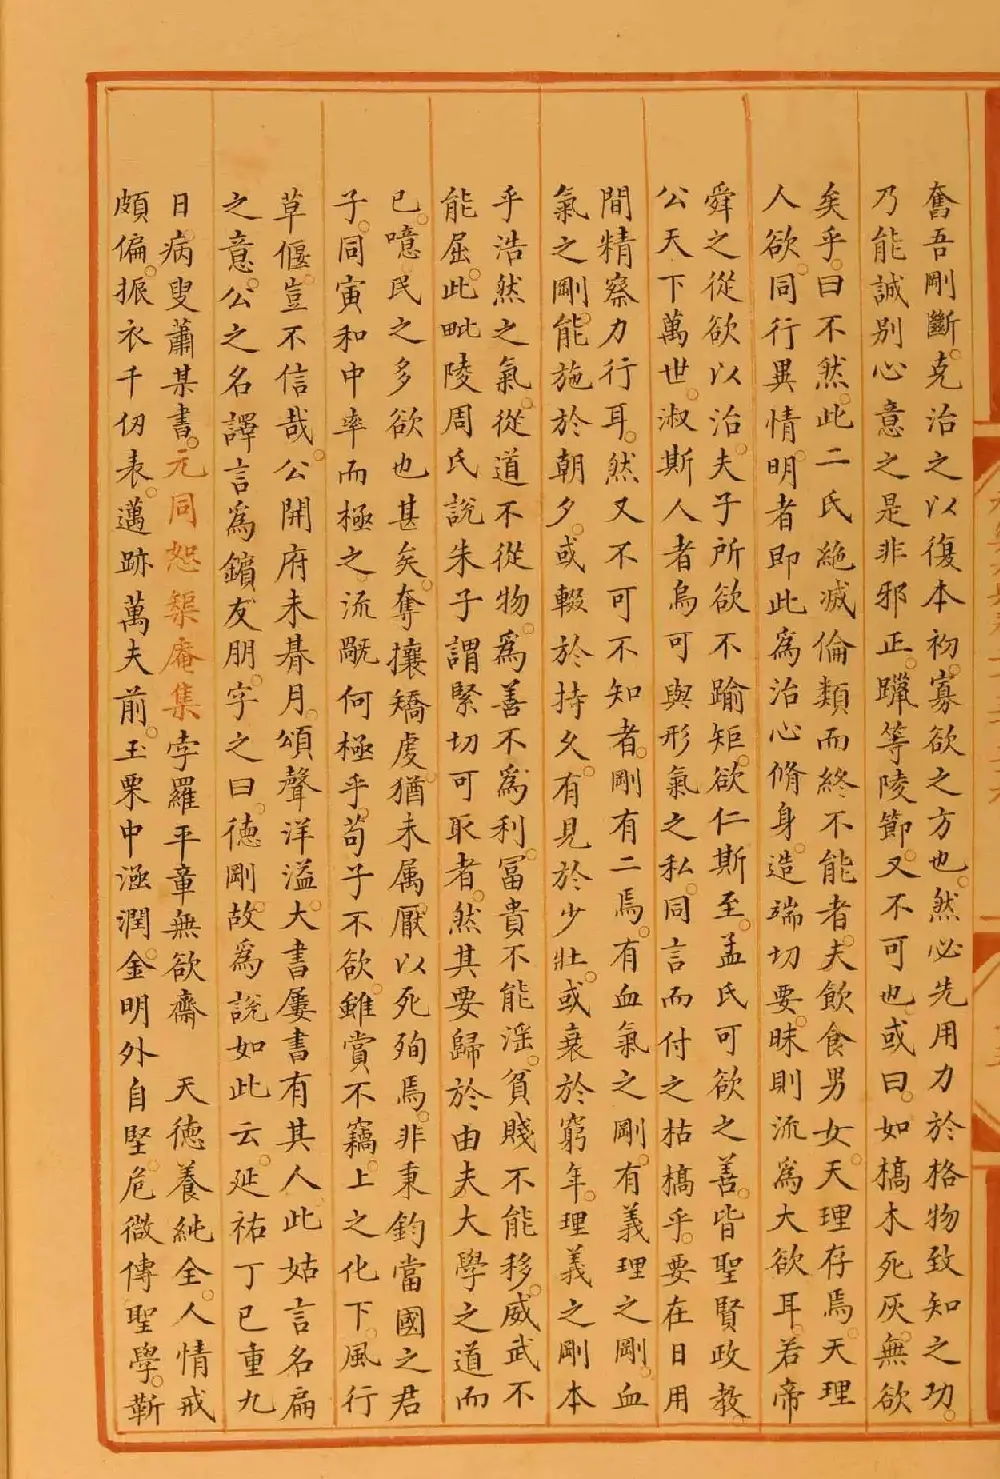 奮吾剛斷克治之以復本初寡欲之方也然必先用力於格物致知之功
乃能誠別心意之是非邪正躐等陵節又不可也或曰如槁木死灰無欲
矣乎曰不然此二氏絶滅倫類而終不能者夫飲食男女天理存焉天理
人欲同行異情明者即此為治心脩身造端切要昧則流為大欲耳若帝
舜之從欲以治夫子所欲不踰矩欲仁斯至孟氏可欲之善皆聖賢政教
公天下萬世淑斯人者烏可與形氣之私同言而付之枯槁乎要在日用
間精察力行耳然又不可不知者剛有二焉有血氣之剛有義理之剛血
氣之剛能施於朝夕或輟於持久有見於少壯或衰於窮年理義之剛本
乎浩然之氣從道不從物為善不為利富貴不能滛貧賤不能移威武不
能屈此毗陵周氏說朱子謂緊切可取者然其要歸於由夫大學之道而
已噫民之多欲也甚矣奪攘矯虔猶未属厭以死殉焉非秉鈞當國之君
子同寅和中率而極之流毆何極乎苟子不欲雖賞不竊上之化下風行
草偃豈不信哉公開府未朞月頌聲洋溢大書屢書有其人此姑言名扁
之意公之名譯言為鑌友朋字之曰德剛故為說如此云延祐丁巳重九
日病叟蕭某書元同恕榘庵集孛羅平章無欲齋 天德養純全人情戒
頗偏振衣千仞表邁跡萬夫前玉栗中涵潤金明外自堅危微傳聖學靳